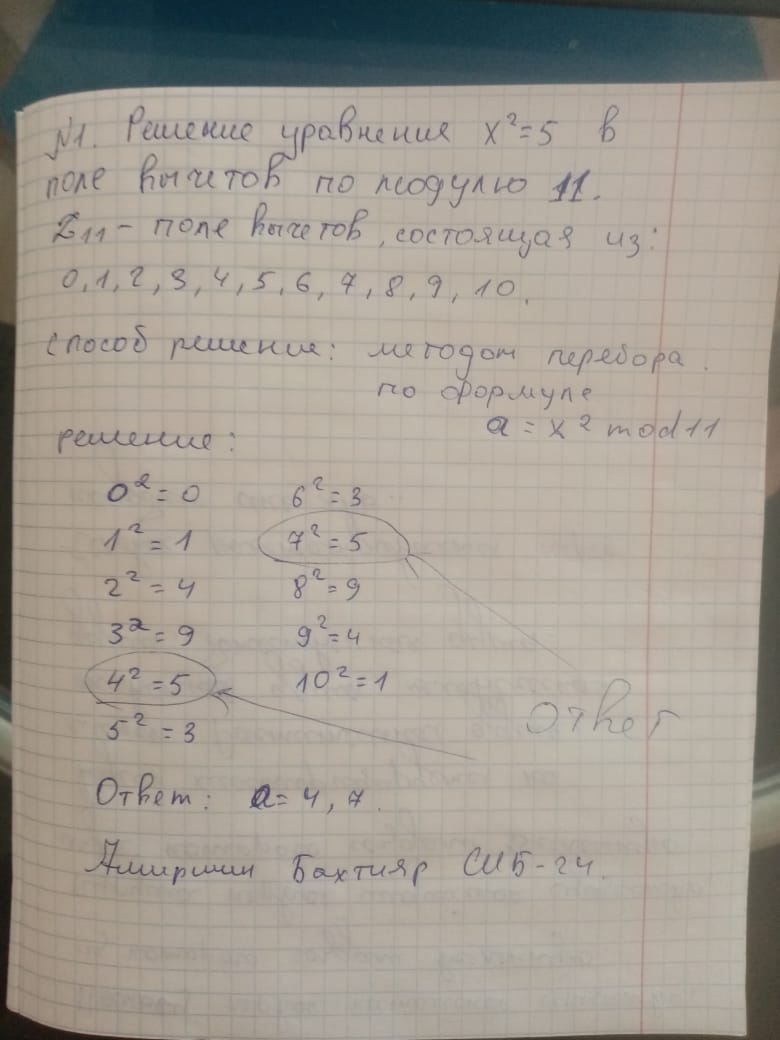 №1. Решение уравнения x²=5 в
поле вычетов по модулю 11.
Z₁₁ - поле вычетов, состоящая из:
0,1,2,3,4,5,6,7,8,9,10.
способ решение: методом перебора.
по формуле
a = x² mod 11
решение:
0² = 0 6² = 3
1² = 1 7² = 5
2² = 4 8² = 9
3² = 9 9² = 4
4² = 5 10² = 1
ответ
5² = 3
Ответ: a = 4, 7.
Бахтияр СИБ-24.